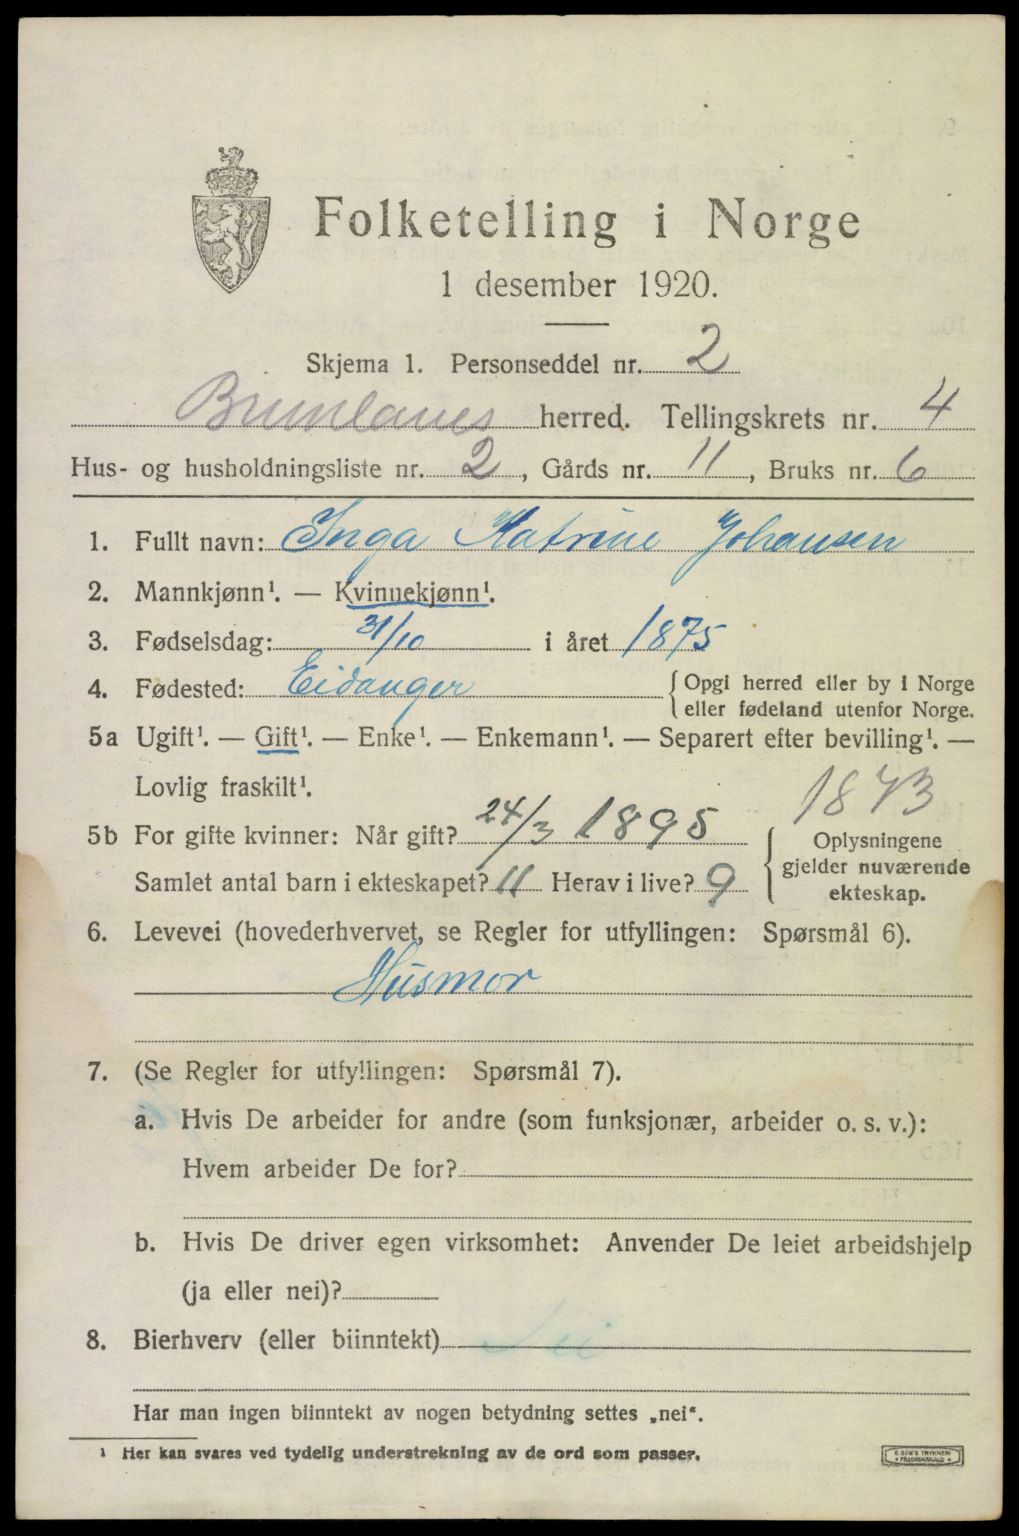 Folketelling i Norge
1 desember 1920.
Skjema 1. Personseddel nr. 2
Brunlanes herred. Tellingskrets nr. 4
Hus- og husholdningsliste nr. 2, Gårds nr. 11, Bruks nr. 6
1. Fullt navn: Inga Katrine Johansen
2. Mannkjønn¹. — Kvinnekjønn¹.
3. Fødselsdag: 31/10 i året 1875
4. Fødested: Eidanger {Opgi herred eller by i Norge
eller fødeland utenfor Norge.
5a Ugift¹. — Gift¹. — Enke¹. — Enkemann¹. — Separert efter bevilling¹. —
Lovlig fraskilt¹.
1873
5b For gifte kvinner: Når gift? 24/3 1895
Samlet antal barn i ekteskapet? 11 Herav i live? 9
{Oplysningene
gjelder nuværende
ekteskap.
6. Levevei (hovederhvervet, se Regler for utfyllingen: Spørsmål 6).
Husmor
7. (Se Regler for utfyllingen: Spørsmål 7).
a. Hvis De arbeider for andre (som funksjonær, arbeider o. s. v.):
Hvem arbeider De for?
b. Hvis De driver egen virksomhet: Anvender De leiet arbeidshjelp
(ja eller nei)?
8. Bierhverv (eller biinntekt) Nei
Har man ingen biinntekt av nogen betydning settes „nei“.
¹ Her kan svares ved tydelig understrekning av de ord som passer.